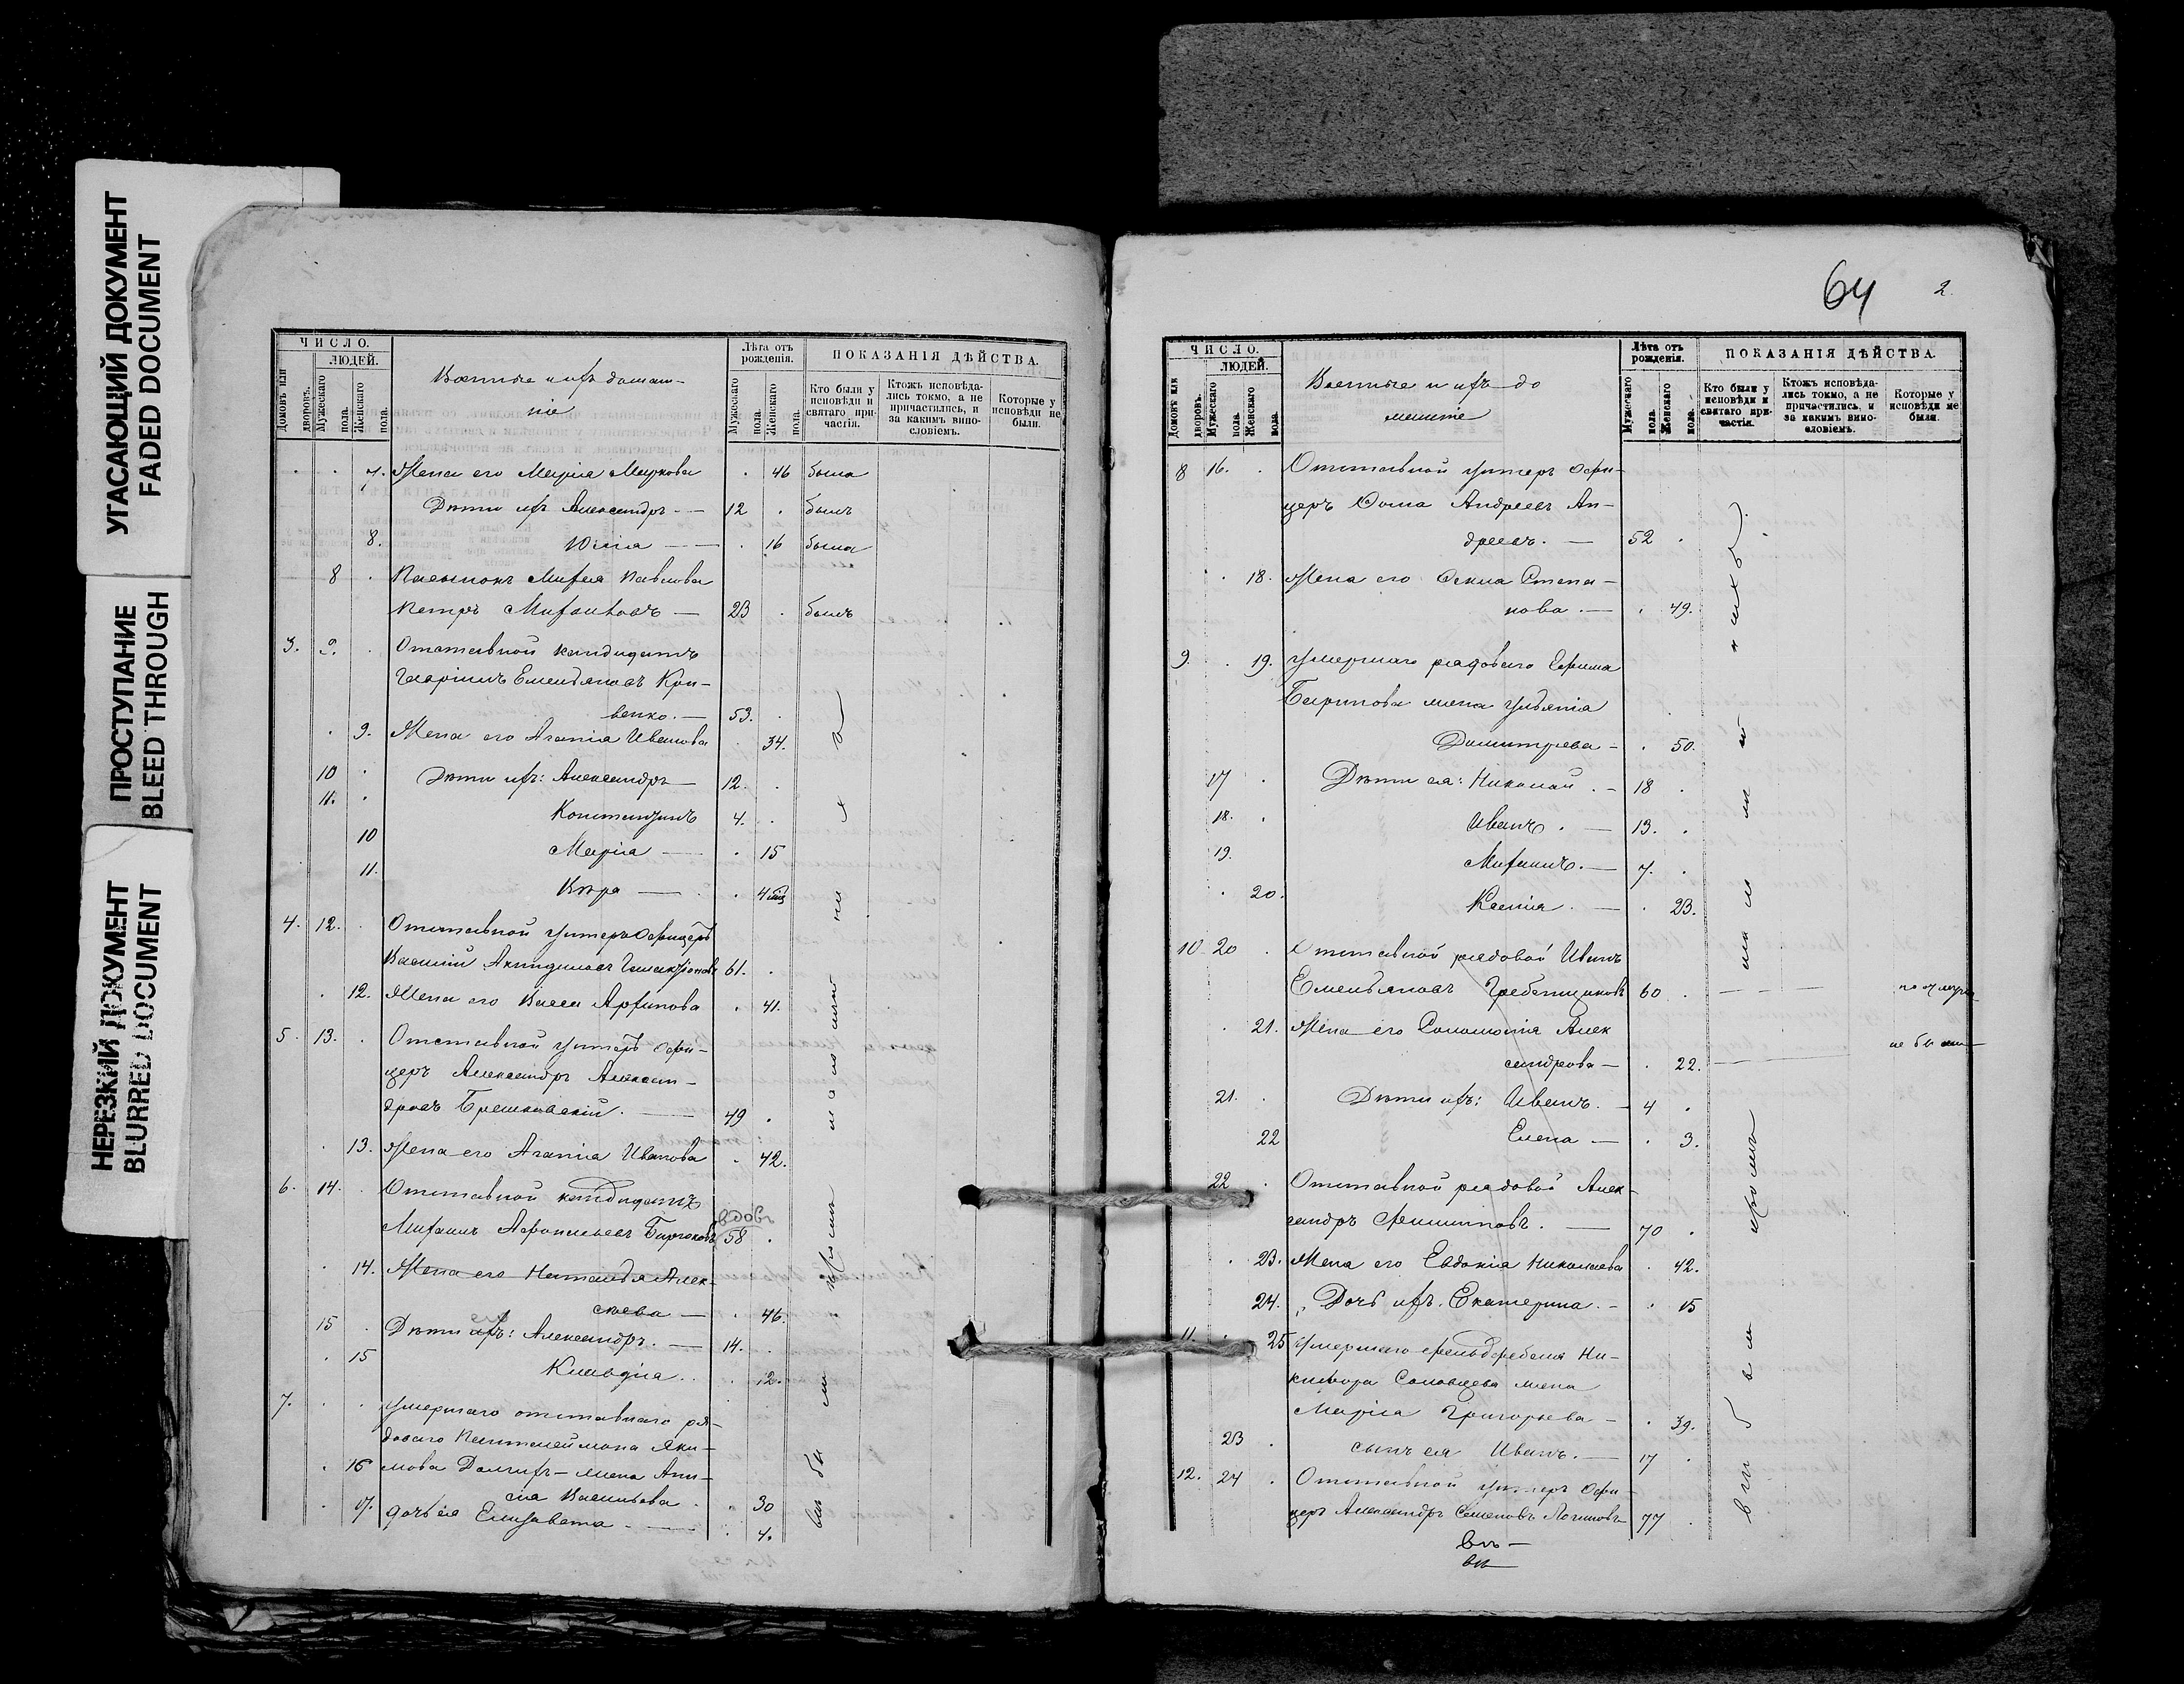 УГАСАЮЩИЙ ДОКУМЕНТ
FADED DOCUMENT
ПРОСТУПАНИЕ
BLEED THROUGH
НЕРЕЗКИЙ ДОКУМЕНТ
BLURRED DOCUMENT
ЧИСЛО.
ЛЮДЕЙ.
Домовъ или дворовъ.
Мужескаго пола.
Женскаго пола.
Военные и ихъ домаш-
ніе
Лѣта отъ рожденія.
Мужескаго пола.
Женскаго пола.
ПОКАЗАНІЯ ДѢЙСТВА.
Кто были у исповѣди и святаго при-частія.
Ктожъ исповѣда-лись токмо, а не причастились, и за какимъ вино-словіемъ.
Которые у исповѣди не были.
7. Жена его Марія Маркова 46 была
Дѣти ихъ Александръ — 12 былъ
8. Юлія — 16 была
8 Пасынокъ
Петръ Михайловъ — 23 былъ
3. 9. Отставной кандидатъ
Емельяновъ Кри-
венко. — 53.
9. Жена его Агаѳія Иванова 34.
10 Дѣти ихъ: Александръ — 12.
11. Константинъ 4.
10 Марія — 15
11. Вѣра — 4 мѣс
4. 12. Отставной унтеръ офицеръ
Василій 61.
12. Жена его Васса Архипова 41.
5. 13. Отставной унтеръ офи-
церъ Александръ Алексан-
дровъ 49
13. Жена его Агаѳія Иванова 42.
6. 14. Отставной кандидатъ
вдовъ
Михаилъ Афонасьевъ Бирюковъ 58
14. Жена его Наталья Алек-
сѣева — 46.
15 Дѣти ихъ: Александръ. — 14.
15 Клавдія. 12.
7. Умершаго отставнаго ря-
доваго Пантелеймона Яки-
16 мова жена Ани-
сія Васильева 30
17. дочь ея Елизавета — 4.
64 2.
ЧИСЛО.
ЛЮДЕЙ.
Домовъ или дворовъ.
Мужескаго пола.
Женскаго пола.
Военные и ихъ до
машніе
Лѣта отъ рожденія.
Мужескаго пола.
Женскаго пола.
ПОКАЗАНІЯ ДѢЙСТВА.
Кто были у исповѣди и святаго при-частія.
Ктожъ исповѣда-лись токмо, а не причастились, и за какимъ вино-словіемъ.
Которые у исповѣди не были.
8 16. Отставной унтеръ офи-
церъ Ѳома Андреевъ Ан-
дреевъ. — 52
18. Жена его Степа-
нова. — 49.
9. 19. Умершаго рядоваго Ефима
жена Ульянія
Димитріева — 50.
17 Дѣти ея: Николай. — 18
18. Иванъ. — 13.
19. Михаилъ. — 7.
20. Ксенія. — 23.
10 20 Отставной рядовой Иванъ
Емельяновъ Гребенщиковъ 60
21. Жена его Соломонія Алек
сандрова — 22. не были
21. Дѣти ихъ: Иванъ. — 4
22 Елена — 3.
22 Отставной рядовой Алек-
сандръ Филипповъ. — 70
23. Жена его Евдокія Николаева 42.
24. Дочь ихъ. Екатерина. — 15
11 25 Умершаго фельдфебеля Ни-
кифора Соловцева жена
Марія Григорьева — 39.
23 сынъ ея Иванъ. — 17
12. 24 Отставной унтеръ офи-
церъ Александръ Семеновъ Логиновъ 77